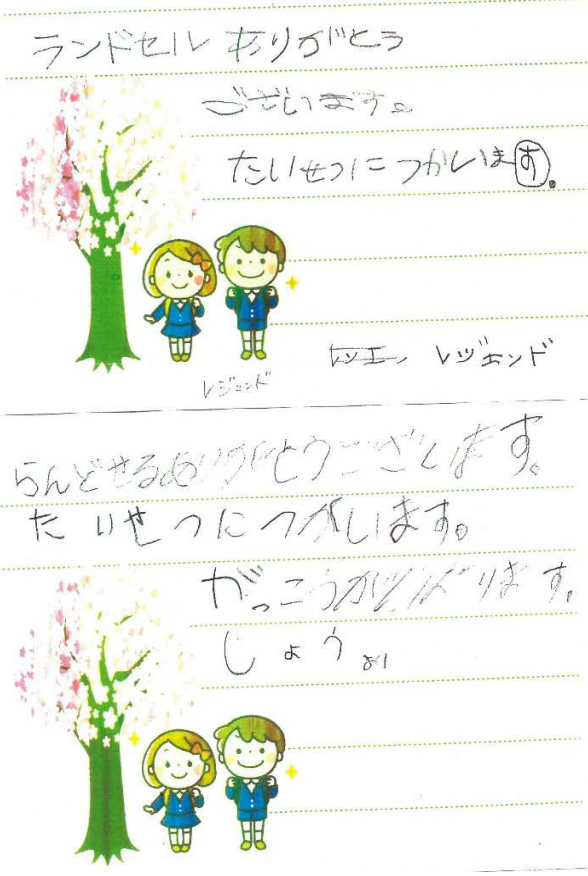 ランドセル ありがとう
ございます。
たいせつにつかいます。
レツエン レヅエンド
レジェンド
らんどせるありがとうございます。
たいせつにつかいます。
がっこうがんばります。
しょうより